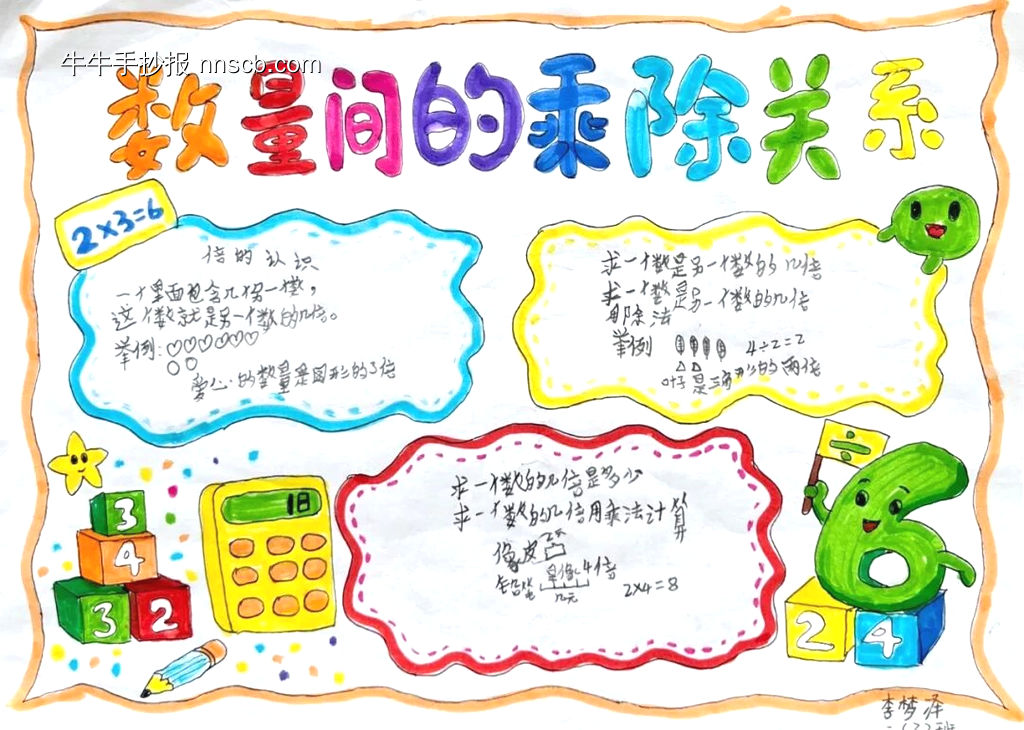 牛牛手抄报 nnscb.com
数量间的乘除关系
2×3=6
倍的认识
一个里面包含几个另一个数,
这个数就是另一个数的几倍。
举例:
爱心的数量是圆形的3倍
求一个数是另一个数的几倍
求一个数是另一个数的几倍
用除法
举例 4÷2=2
叶子是三角形的两倍
求一个数的几倍是多少
求一个数的几倍用乘法计算
2元
橡皮
是橡皮4倍
铅笔 2×4=8
几元
18
3
4
3 2
÷
6
2 4
李梦泽